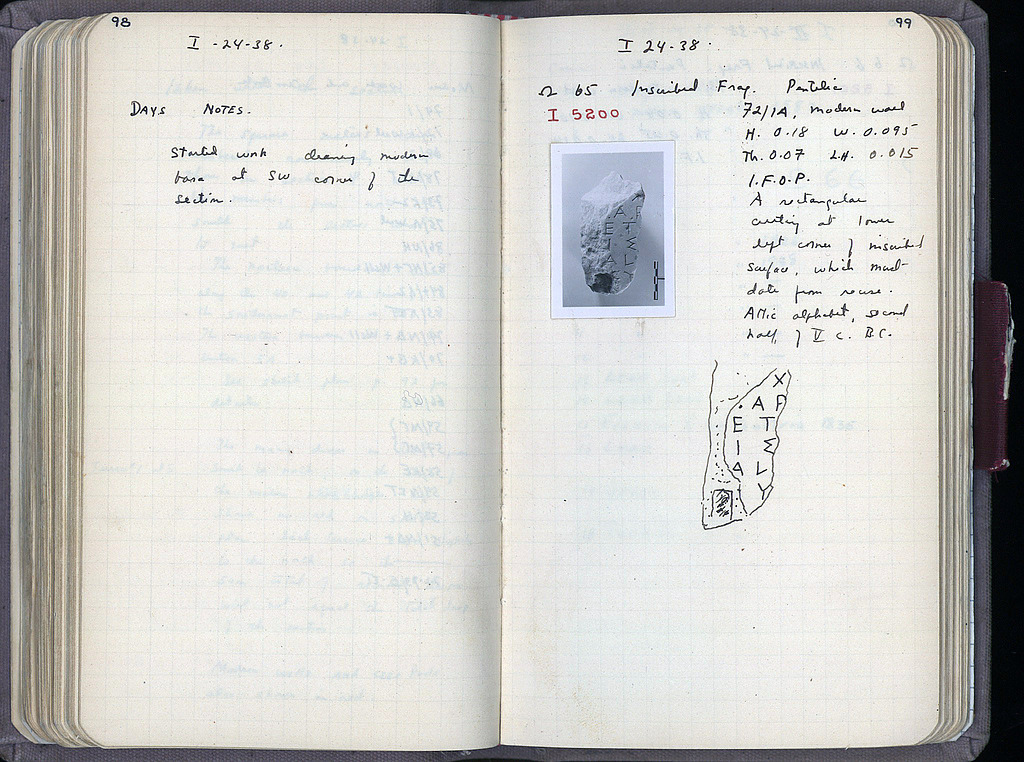 98
I - 24-38.
DAYS NOTES.
Started work cleaning modern
base at SW corner of the
section.
99
I 24-38.
Ω 65 Inscribed Frag. Pentelic
I 5200
72/ΙΑ, modern wall
H. 0.18 W. 0.095
Th. 0.07 L.H. 0.015
I.F.O.P.
A rectangular
cutting at lower
left corner of inscribed
surface, which must
date from reuse.
Attic alphabet, second
half of V c. B.C.
X
A P
E T
I Σ
A L
Y